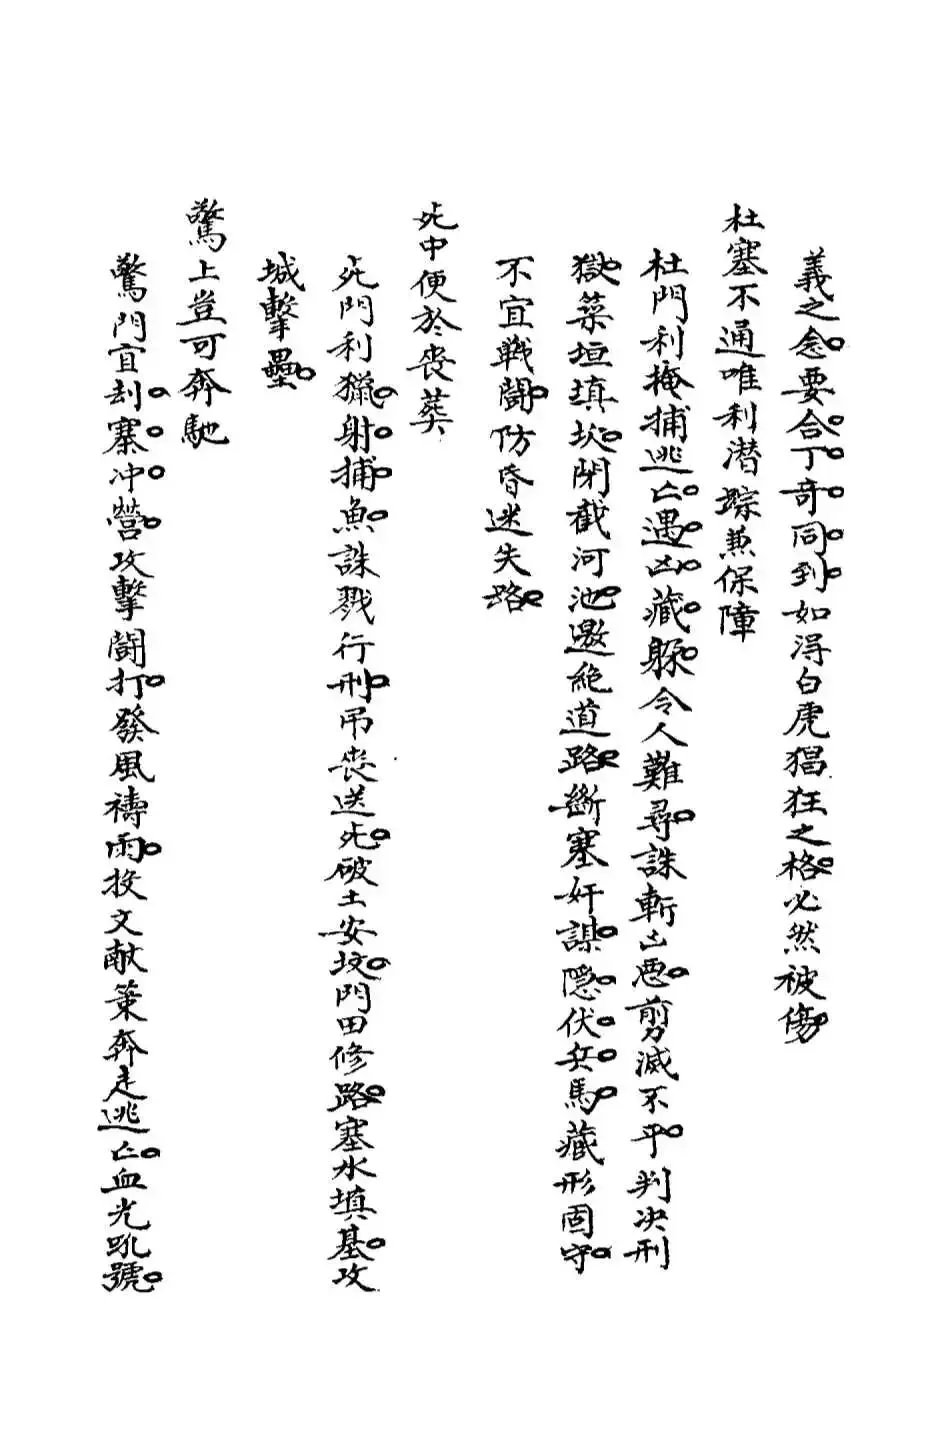 義之念。要合。丁奇。同。到。如得白虎猖狂之格。必然被傷。
杜塞不通唯利潜踪兼保障
杜門利掩捕逃亡。遇。凶。藏。躲。令人難尋。誅斬凶惡。剪滅不平。判决刑
獄。築垣填坎。閉截河池。邀絶道路。斷塞奸謀。隐。伏。兵。馬。藏形固守。
不宜戰鬪。防昏迷失路。
死中便於喪葬
死門利獵。射。捕。魚。誅戮行刑。吊喪送死。破土安坟。門田修路。塞水填基。攻
城擊壘。
驚上豈可奔馳
驚門宜刦。寨。冲。營。攻擊鬪打。發風禱雨。投文献策奔走逃亡。血光吼號。